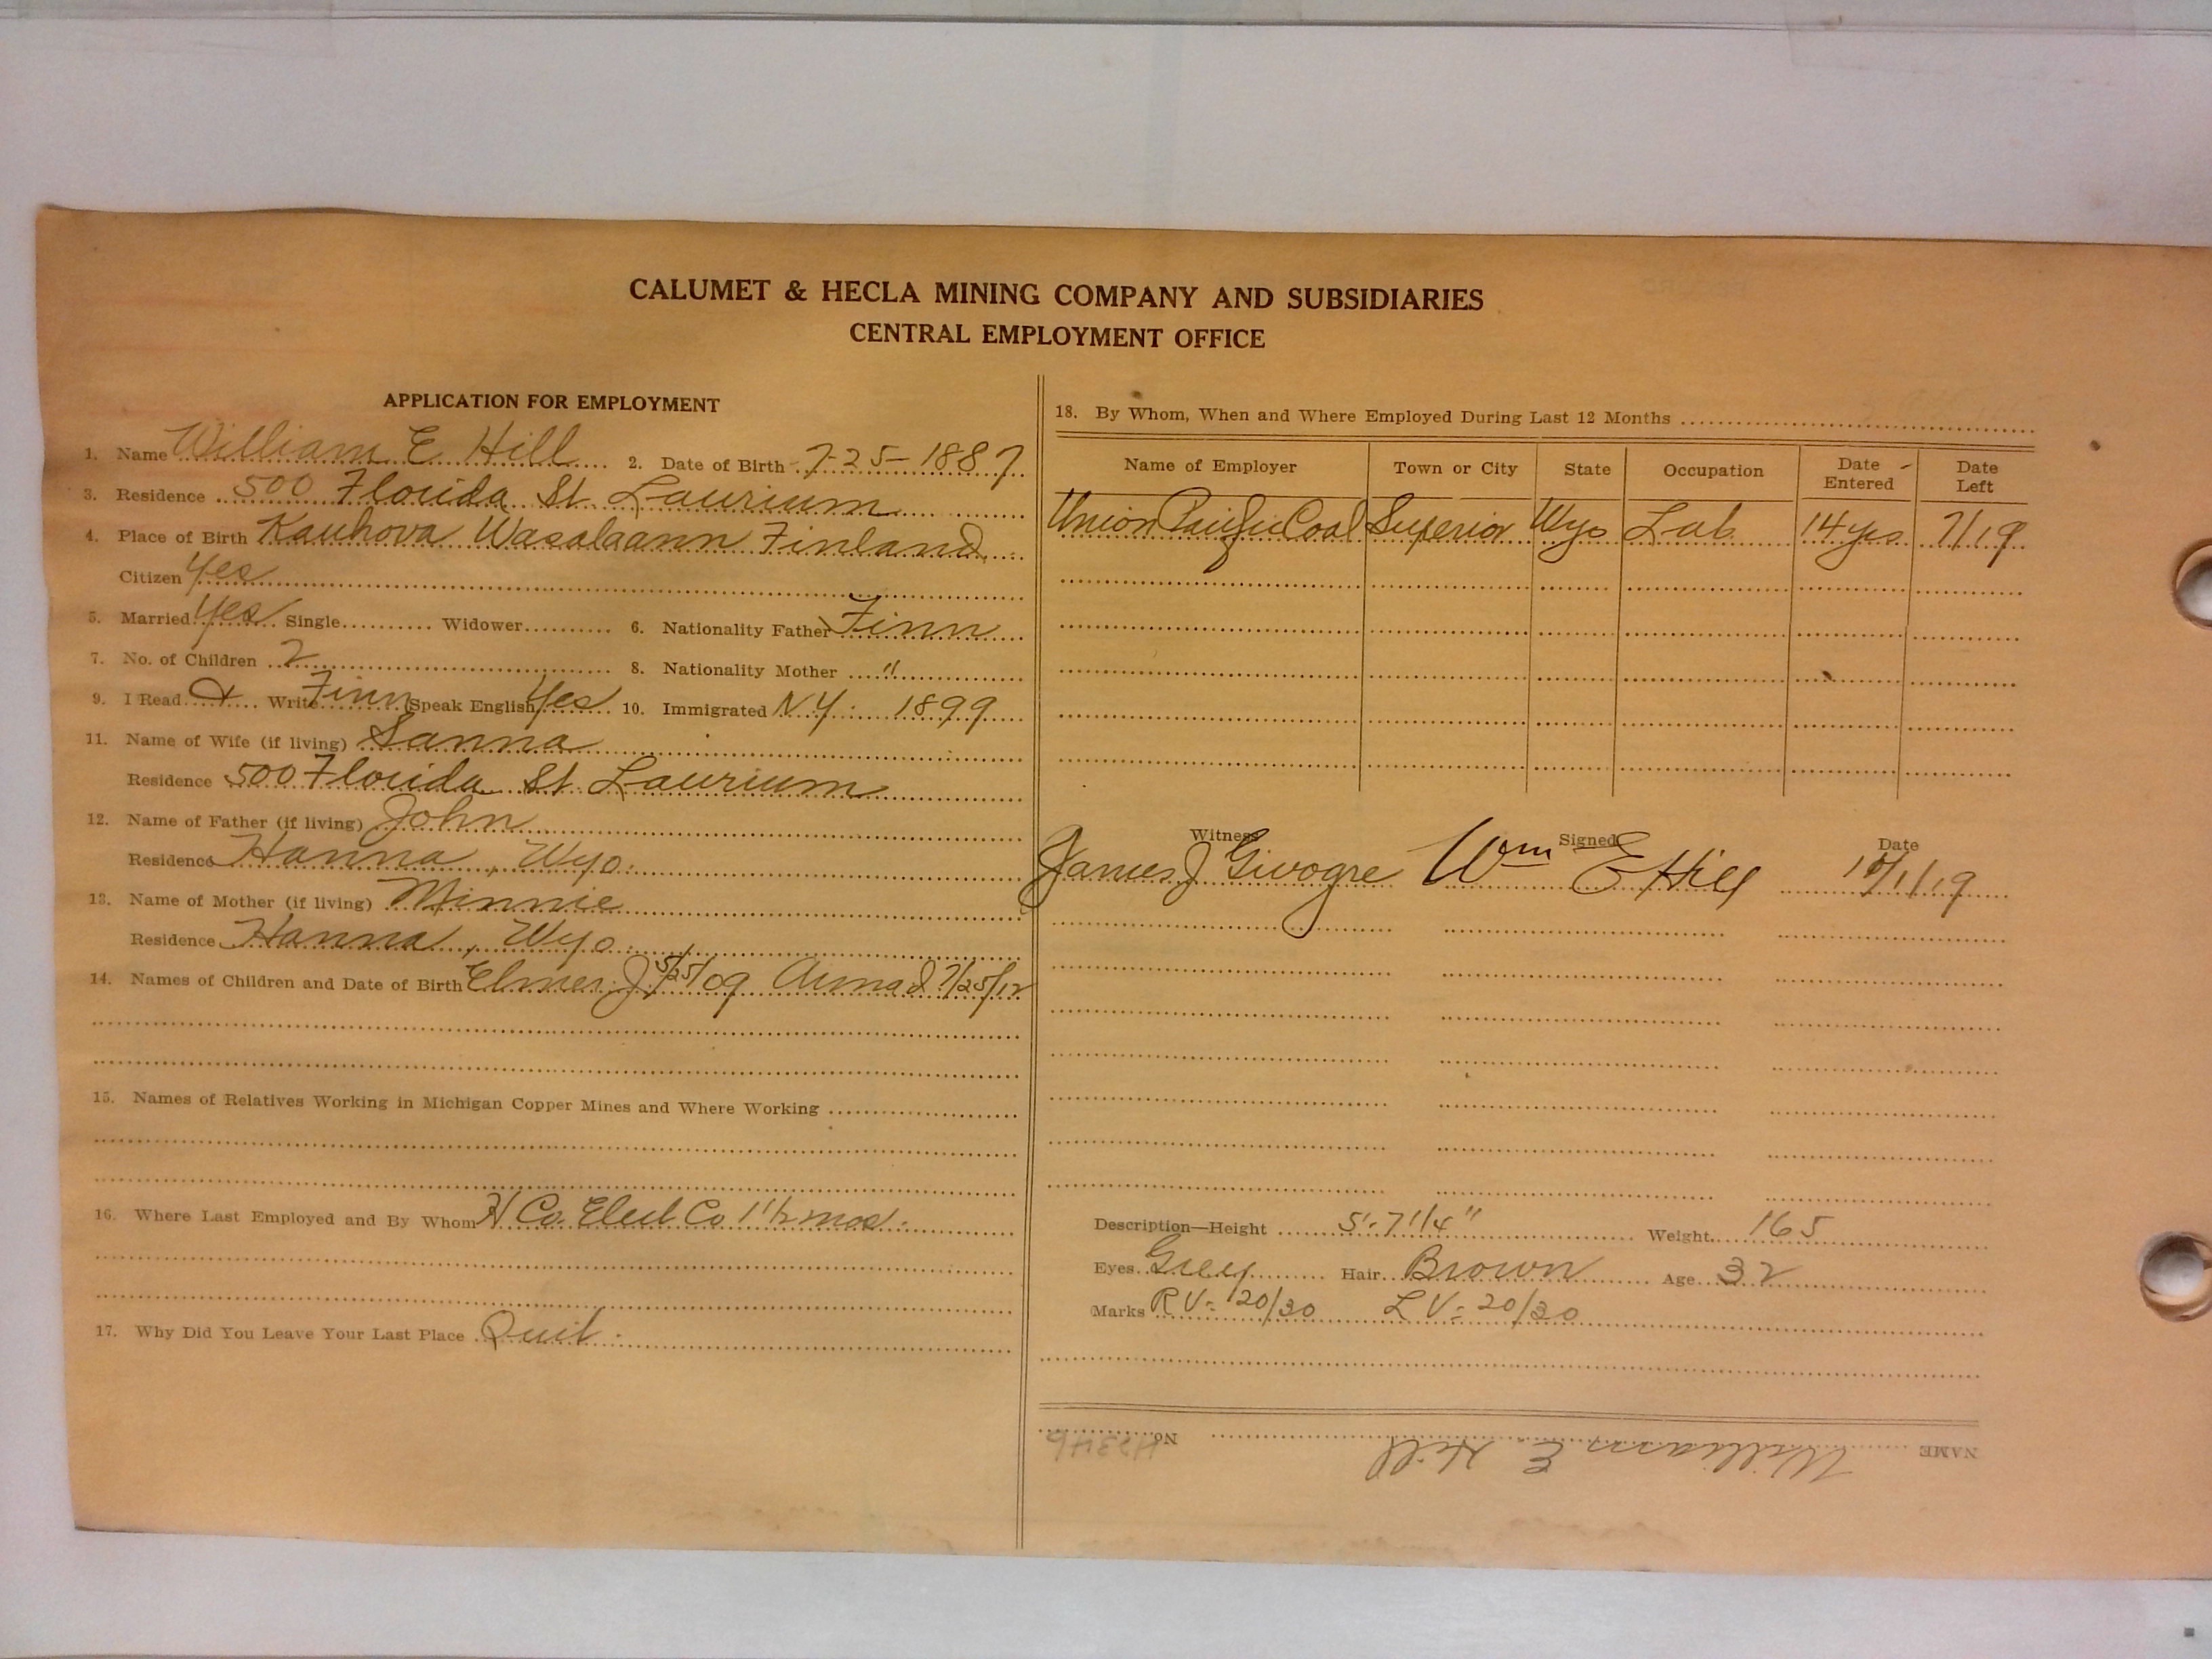 CALUMET & HECLA MINING COMPANY AND SUBSIDIARIES
CENTRAL EMPLOYMENT OFFICE
APPLICATION FOR EMPLOYMENT
1. Name William E Hill 2. Date of Birth 7-25-1887
3. Residence 500 Florida St. Laurium
4. Place of Birth Kauhova Wasalaann Finland
Citizen Yes
5. Married Yes Single Widower 6. Nationality Father Finn
7. No. of Children 2 8. Nationality Mother "
9. I Read & Write Finn Speak English Yes 10. Immigrated N.Y. 1899
11. Name of Wife (if living) Sanna
Residence 500 Florida St. Laurium
12. Name of Father (if living) John
Residence Hanna, Wyo.
13. Name of Mother (if living) Minnie
Residence Hanna, Wyo.
14. Names of Children and Date of Birth Elmer J 5/25/09 7/25/12
15. Names of Relatives Working in Michigan Copper Mines and Where Working
16. Where Last Employed and By Whom H Co. Elect Co 1 1/2 mos.
17. Why Did You Leave Your Last Place Quit.
18. By Whom, When and Where Employed During Last 12 Months
Name of Employer Town or City State Occupation Date Entered Date Left
Union Pacific Coal Superior Wyo Lab. 14 yrs 7/19
Witness Signed Date
James J Givogre Wm E Hill 10/1/19
Description—Height 5'-7 1/4" Weight 165
Eyes Grey Hair Brown Age 32
Marks R.V. = 20/30 L V. = 20/30
NAME William E. Hill No.